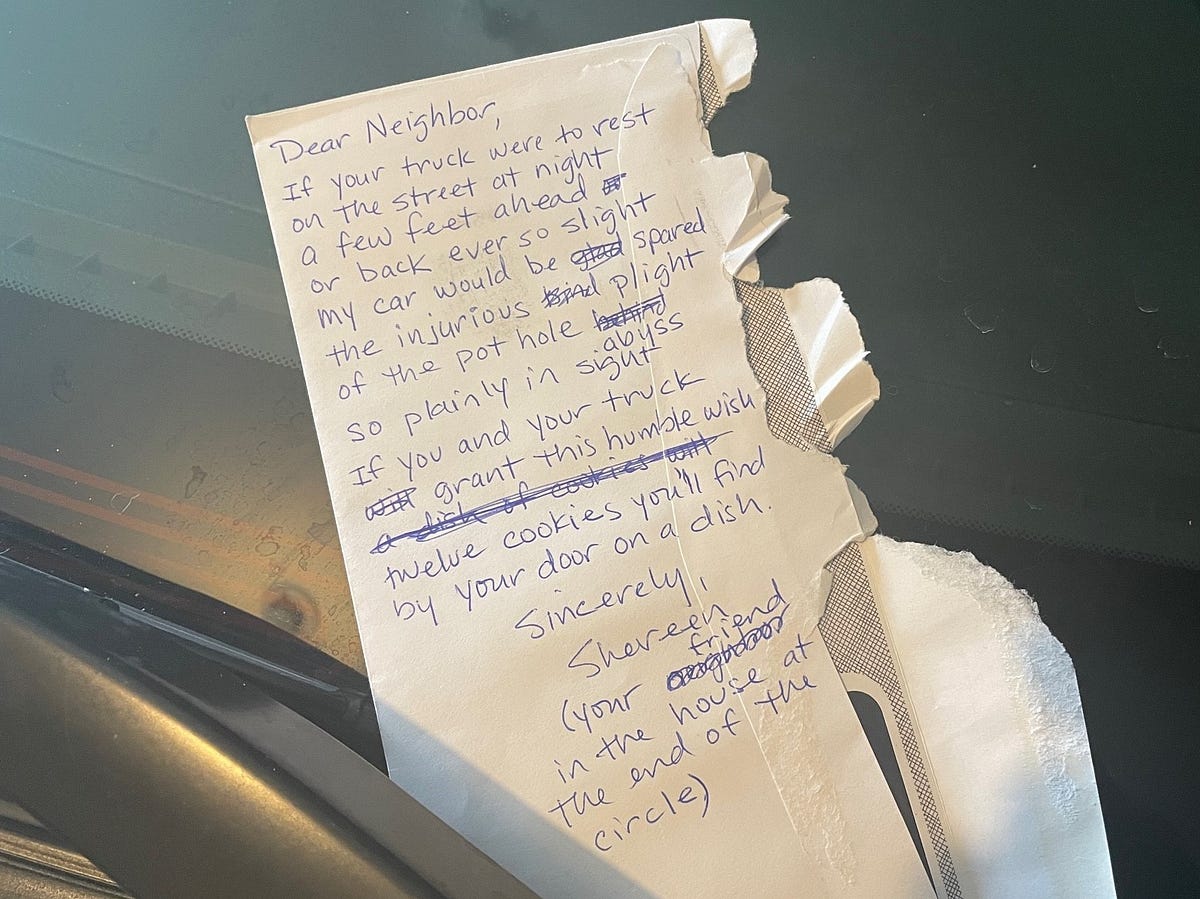 Dear Neighbor,
If your truck were to rest
on the street at night
a few feet ahead
or back ever so slight
my car would be glad spared
the injurious plight
of the pot hole behind
abyss
so plainly in sight
If you and your truck
will grant this humble wish
a dish of cookies will
twelve cookies you'll find
by your door on a dish.
Sincerely,
Shereen
friend
(your neighbor
in the house at
the end of the
circle)